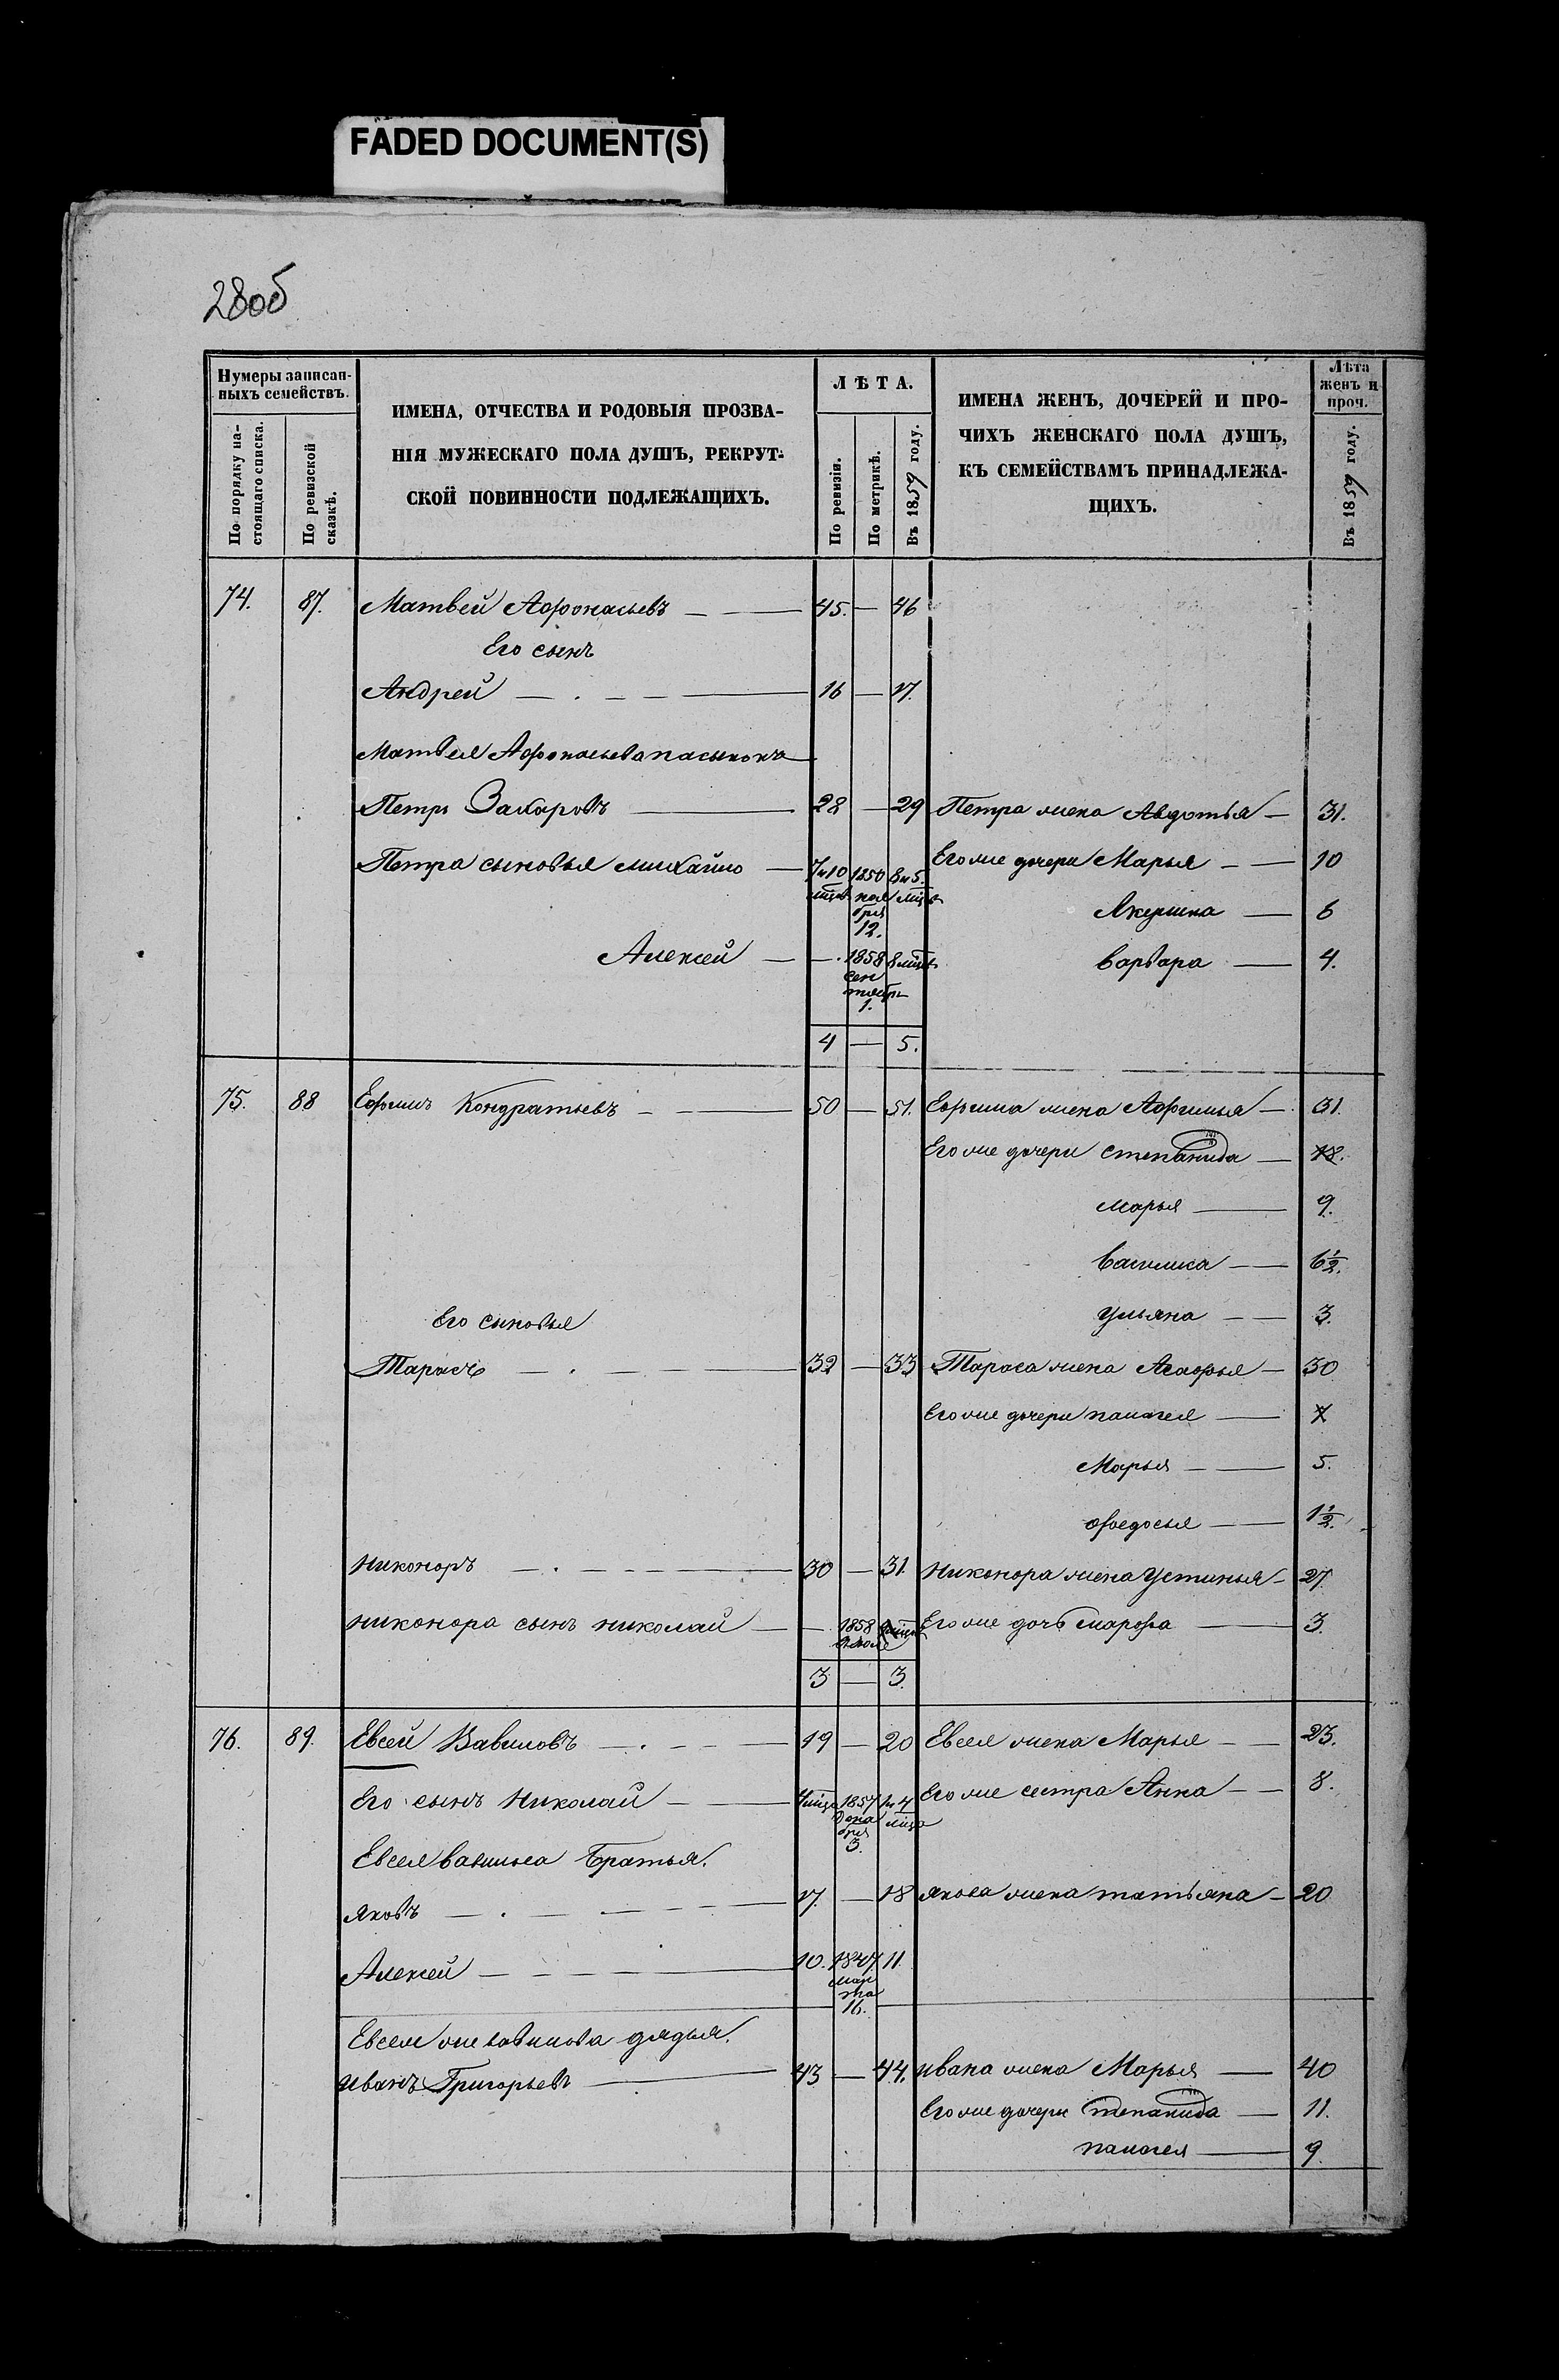 FADED DOCUMENT(S)
28об
Нумеры записан-
ныхъ семействъ.
По порядку на-
стоящаго списка.
По ревизской
сказкѣ.
ИМЕНА, ОТЧЕСТВА И РОДОВЫЯ ПРОЗВА-
НІЯ МУЖЕСКАГО ПОЛА ДУШЪ, РЕКРУТ-
СКОЙ ПОВИННОСТИ ПОДЛЕЖАЩИХЪ.
ЛѢТА.
По ревизіи.
По метрикѣ.
Въ 1859 году.
ИМЕНА ЖЕНЪ, ДОЧЕРЕЙ И ПРО-
ЧИХЪ ЖЕНСКАГО ПОЛА ДУШЪ,
КЪ СЕМЕЙСТВАМЪ ПРИНАДЛЕЖА-
ЩИХЪ.
Лѣта
женъ и
проч.
Въ 1859 году.
74. 87. Матвей Афонасьевъ — 45. — 46
Его сынъ
Андрей — 16 — 17.
Матвея Афонасьева пасынокъ
Петръ Захаровъ — 28 — 29 Петра жена Авдотья — 31.
Петра сыновья Михайло — 7 и 10 1850 8 и 5. Его же дочери Марья — 10
мцов ноя мцъ
бря
12.
Акулина — 6
Алексей — 1858 8 мцов Варвара — 4.
сен
тября
1.
4 — 5.
75. 88 Ефимъ Кондратьевъ — 50 — 51. Ефима жена Афимья — 31.
Его же дочери Степанида — 18.
Марья — 9.
Василиса — 6½.
Его сыновья Ульяна — 3.
Тарасъ — 32 — 33 Тараса жена Агафья — 30
Его же дочери Палагея — 7
Марья — 5.
Фаедосья — 1½.
Никоноръ — 30 — 31. Никонора жена Устинья — 27.
Никонора сынъ Николай — 1858 Его же дочь Марфа — 3.
3 — 3.
76. 89. Евсей Вавиловъ — 19 — 20 Евсея жена Марья — 23.
Его сынъ Николай — 4 мца 1857 1 и 4 Его же сестра Анна — 8.
дека мца
бря
3.
Евсея Вавилова Братья.
Яковъ — 17. — 18 Якова жена Татьяна — 20
Алексей — 10. 1847 11.
мар
та
16.
Евсея же Вавилова дядья.
Иванъ Григорьевъ — 43 — 44. Ивана жена Марья — 40
Его же дочери Степанида — 11.
Палагея — 9.